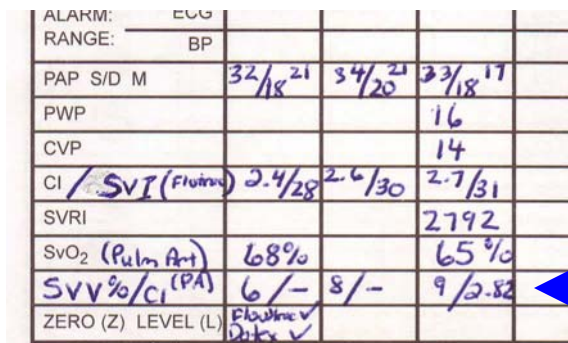 ALARM: ECG
RANGE: BP
PAP S/D M 32/18 21 34/20 21 33/18 17
PWP 16
CVP 14
CI / SVI (Flotrac) 2.4/28 2.6/30 2.7/31
SVRI 2792
SvO2 (Pulm Art) 68% 65%
SVV%/CI (PA) 6/- 8/- 9/2.82
ZERO (Z) LEVEL (L) Flowtrac ✓
Datex ✓